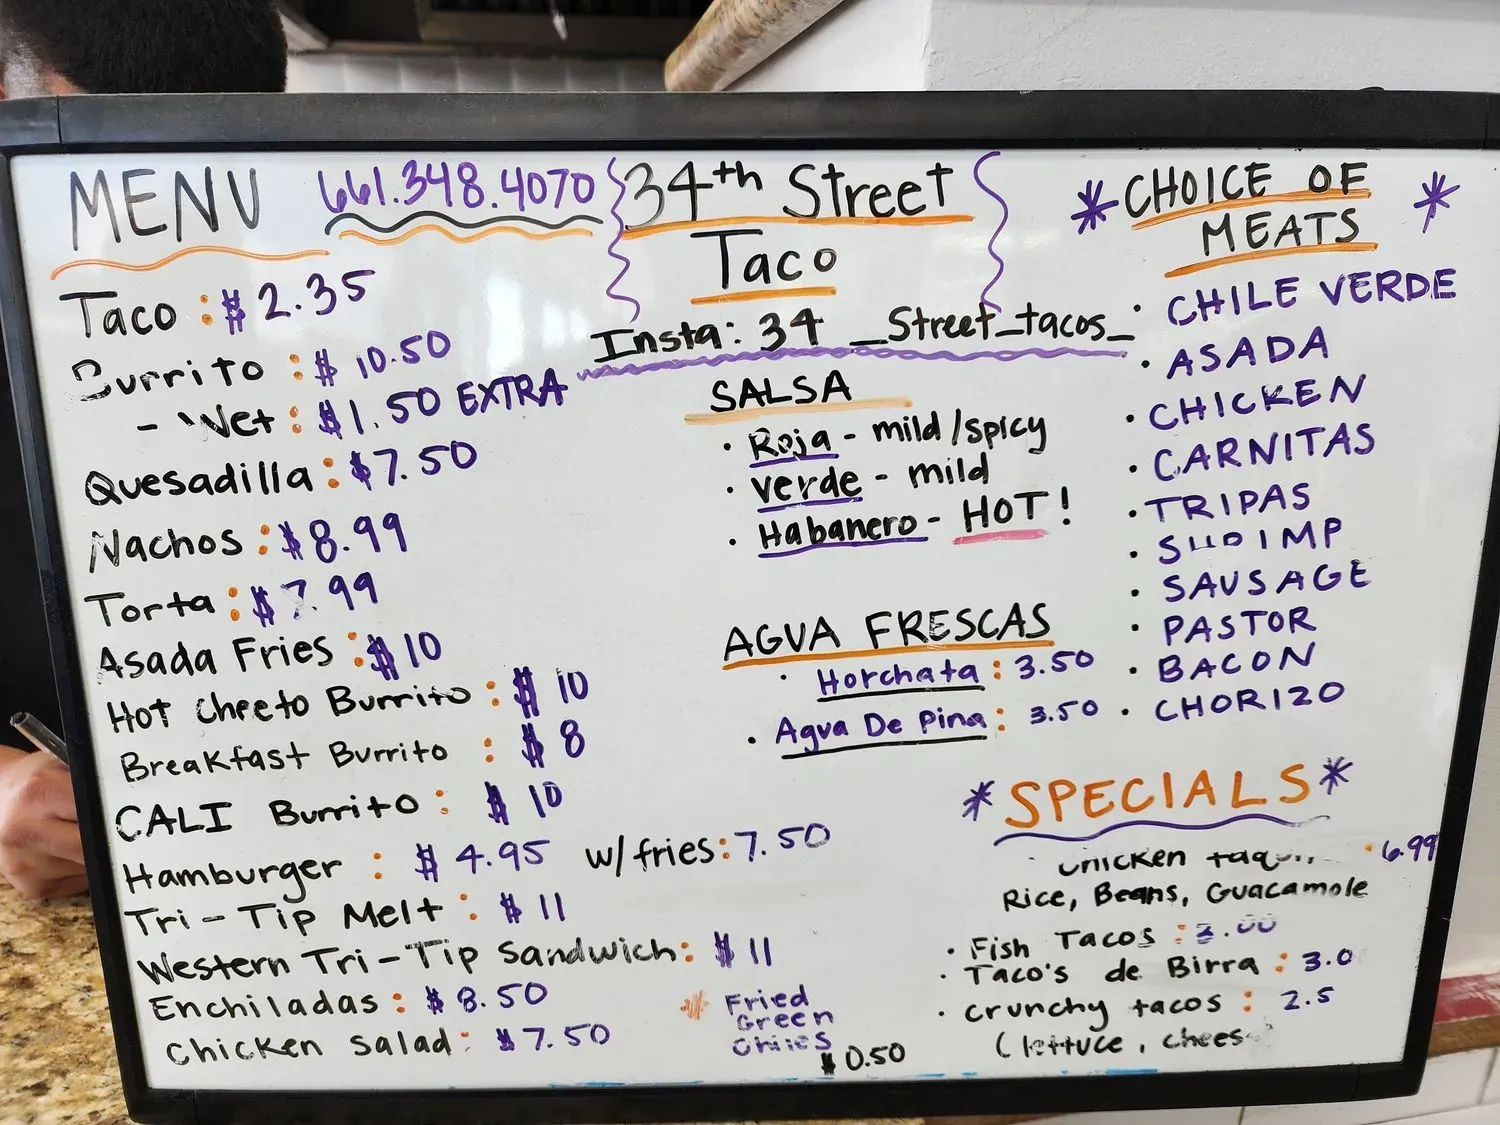 MENU 661.348.4070
Taco : $ 2.35
Burrito : $ 10.50
- Wet : $1.50 EXTRA
Quesadilla : $7.50
Nachos : $8.99
Torta : $7.99
Asada Fries : $10
Hot Cheeto Burrito : $ 10
Breakfast Burrito : $ 8
CALI Burrito : $ 10
Hamburger : $ 4.95 w/fries: 7.50
Tri-Tip Melt : $ 11
Western Tri-Tip Sandwich: $ 11
Enchiladas : $8.50
Chicken Salad: $7.50
34th Street
Taco
Insta: 34 _Street_tacos_
SALSA
· Roja - mild/spicy
· Verde - mild
· Habanero - HOT!
AGUA FRESCAS
· Horchata : 3.50
· Agua De Pina : 3.50
Fried
Green
Chiles
$0.50
* CHOICE OF *
MEATS
· CHILE VERDE
· ASADA
· CHICKEN
· CARNITAS
· TRIPAS
· SHRIMP
· SAUSAGE
· PASTOR
· BACON
· CHORIZO
* SPECIALS *
· Chicken 6.99
Rice, Beans, Guacamole
· Fish Tacos :
· Taco's de Birra : 3.0
· Crunchy tacos : 2.5
(lettuce, chees